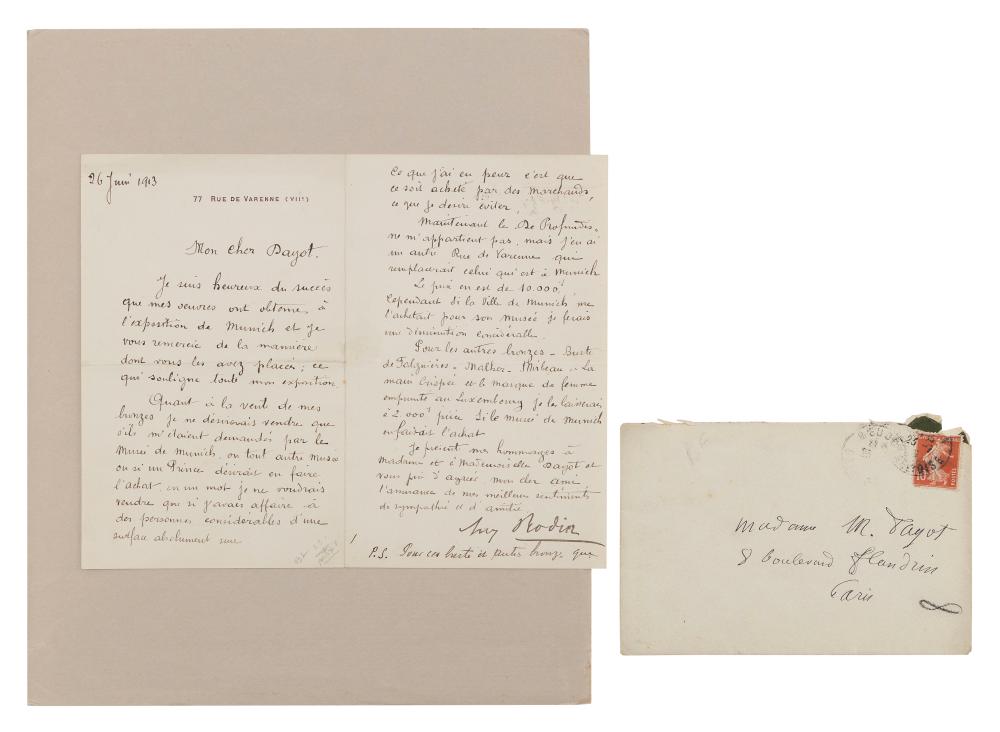 26 Juin 1913
77 RUE DE VARENNE (VIIe)
Mon cher Dayot.
Je suis heureux du succès
que mes oeuvres ont obtenue, à
l'exposition de Munich et je
vous remercie de la mannière
dont vous les avez placées; ce
qui souligne toute mon exposition
Quant à la vente de mes
bronzes je ne désirerais vendre que
s'ils m'étaient demandés par le
Musée de Munich, ou tout autre Musée
ou si un Prince désirait en faire
l'achat, en un mot je ne voudrais
vendre que si j'avais affaire à
des personnes considérables d'une
surface absolument sure
Ce que j'ai eu peur c'est que
ce soit acheté par des marchands,
ce que je désire éviter.
Maintenant le De Profundis,
ne m'appartient pas, mais j'en ai
un autre Rue de Varenne qui
remplacerait celui qui est à Munich
Le prix en est de 10.000f
Cependant si la Ville de Munich me
l'achetait pour son musée je ferais
une diminution considérable.
Pour les autres bronzes - Buste
de Falguières - Malher - Mirbeau - La
main Crispée et le masque de femme
emprunté au Luxembourg je les laisserais
à 2.000f pièce Si le musée de Munich
en faisait l'achat
Je présente mes hommages à
Madame et à Mademoiselle Dayot et
vous prie d'agréer, mon cher ami
l'assurance de mes meilleurs sentiments
de sympathie et d'amitié
Aug Rodin
P.S. Pour ces buste et petits bronze que
10
Madame M. Dayot
8 boulevard Flandrin
Paris